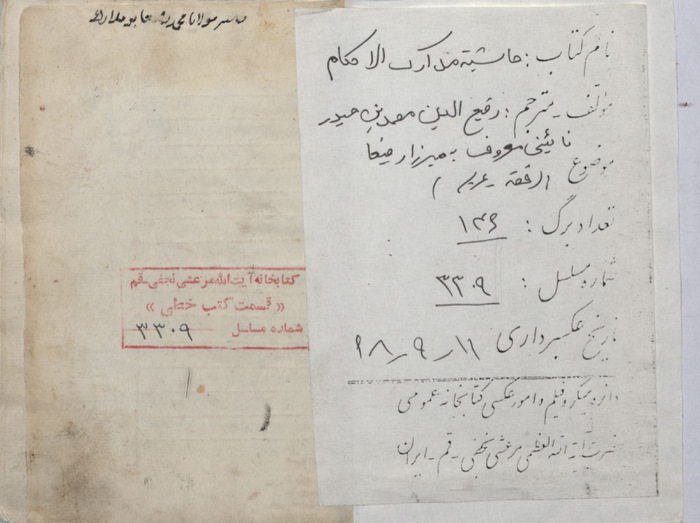 نام کتاب : حاشیة مدارک الاحکام
مؤلف ـ مترجم : رفیع الدین محمد بن حیدر
نائینی معروف به میرزا رفیعا
موضوع ( فقه ـ عربی )
تعداد برگ : ۱۴۶
شماره مسلسل : ۳۳۰۹
تاریخ عکسبرداری ۱۱ـ۹ـ۹۸
دائره میکروفیلم و امور عکسی کتابخانه عمومی
حضرت آیة الله العظمی مرعشی نجفی ـ قم ـ ایران
کتابخانه آیت الله مرعشی نجفی ـ قم
« قسمت کتب خطی »
شماره مسلسل ۳۳۰۹